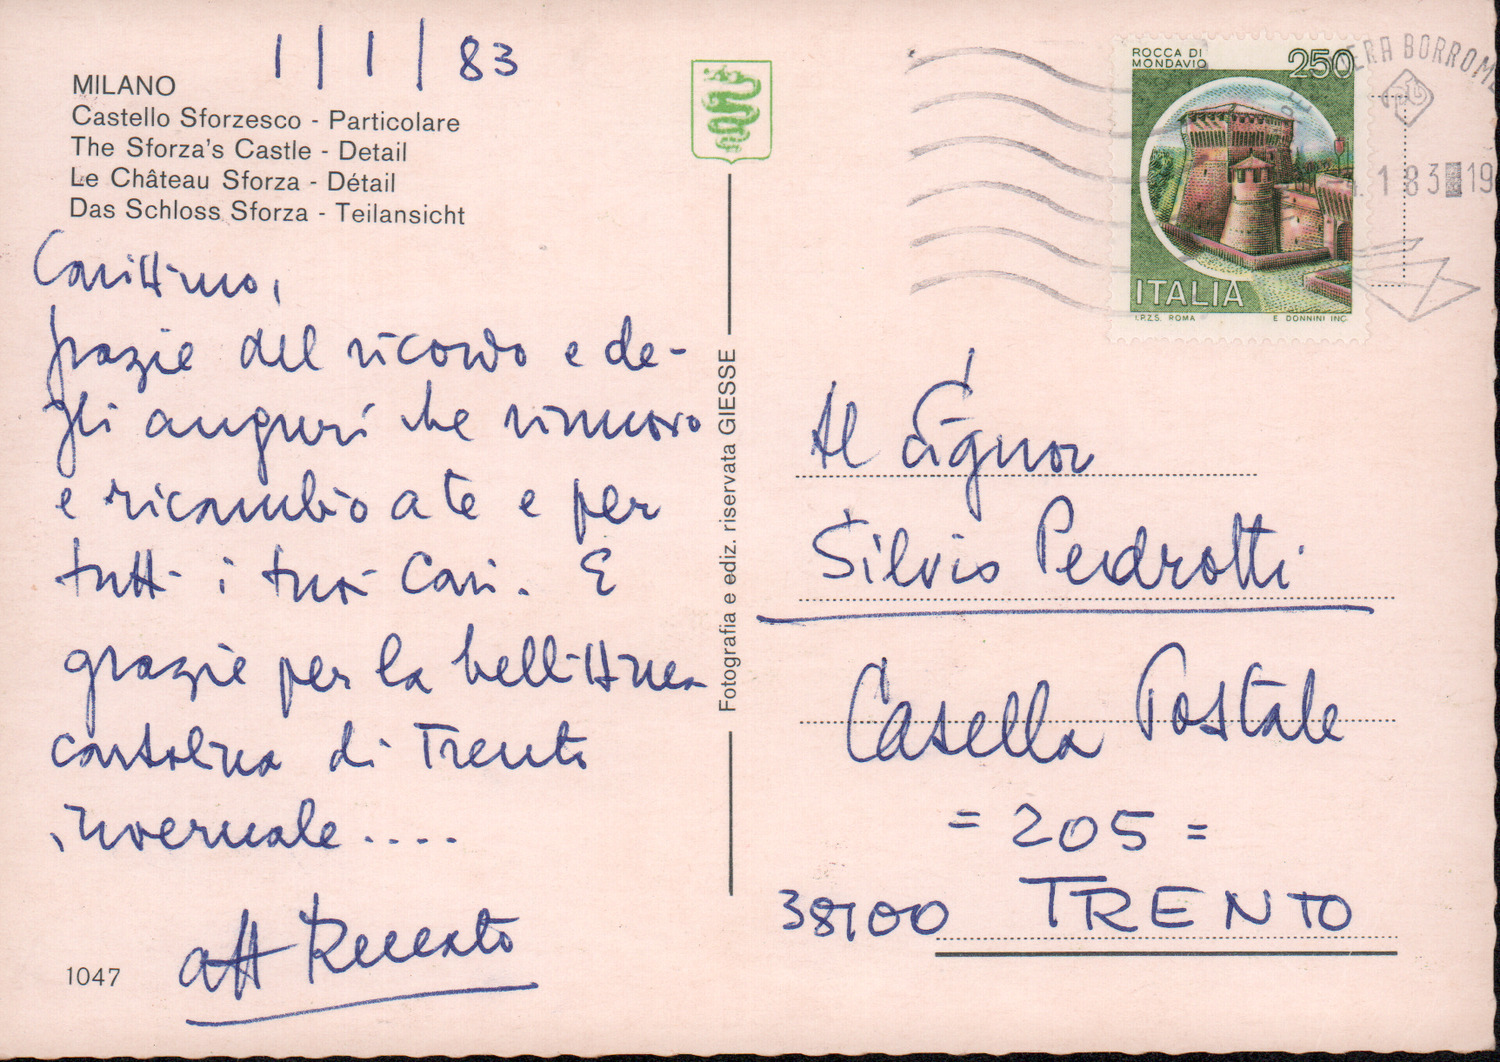 1/1/83
MILANO
Castello Sforzesco - Particolare
The Sforza's Castle - Detail
Le Château Sforza - Détail
Das Schloss Sforza - Teilansicht
Carissimo,
grazie del ricordo e de-
gli auguri che rinnovo
e ricambio a te e per
tutti i tuoi Cari. E
grazie per la bellissima
cartolina di Trento
invernale....
aff
1047
Fotografia e ediz. riservata GIESSE
ROCCA DI
MONDAVIO
250
ITALIA
I.P.Z.S. ROMA
E. DONNINI INC.
ERA BORROME
1 83 19
Al Signor
Silvio Pedrotti
Casella Postale
= 205 =
38100 TRENTO